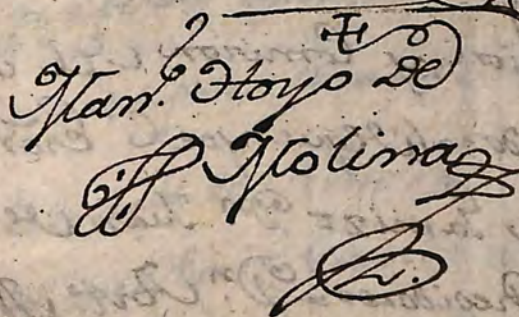 Man.l Hoyo de
Molina